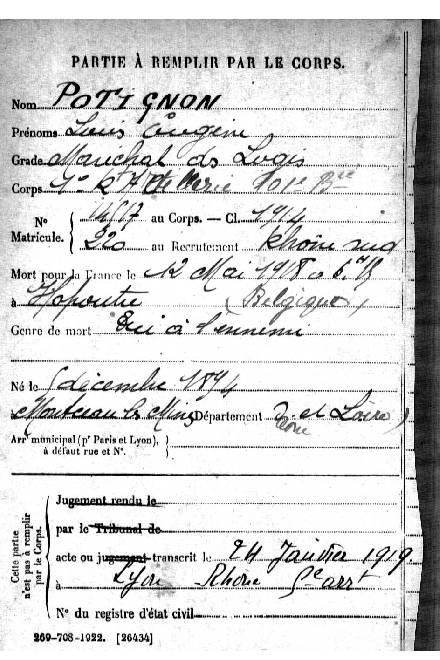 PARTIE À REMPLIR PAR LE CORPS.
Nom POTIGNON
Prénoms Louis Eugène
Grade Maréchal des Logis
Corps
N° 1417 au Corps. — Cl. 1914
Matricule. 220 au Recrutement Rhône sud
Mort pour la France le 12 Mai 1918
à Hapoutre (Belgique)
Genre de mort Tué à l'ennemi
Né le décembre 1894
Montceau les Mines Département S. et Loire
Arr^t municipal (p^r Paris et Lyon), à défaut rue et N°.
Cette partie n'est pas à remplir par le Corps.
Jugement rendu le
par le Tribunal de
acte ou jugement transcrit le 24 Janvier 1919
à Lyon Rhône arr^t
N° du registre d'état civil
269-708-1922. [26434]